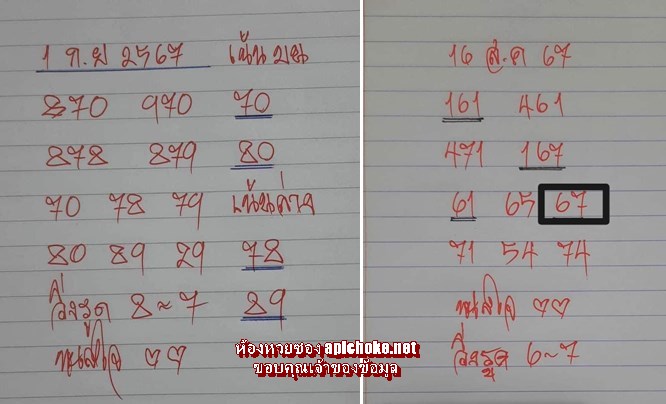 1 ก.ย 2567 เน้นบน
870 970 70
878 879 80
70 78 79 เน้นล่าง
80 89 29 78
วิ่งรูด 8~7 89
ห้องหวยซอง apichoke.net
ขอบคุณเจ้าของข้อมูล
16 ส.ค 67
161 461
471 167
61 65 67
71 54 74
วิ่งรูด 6~7